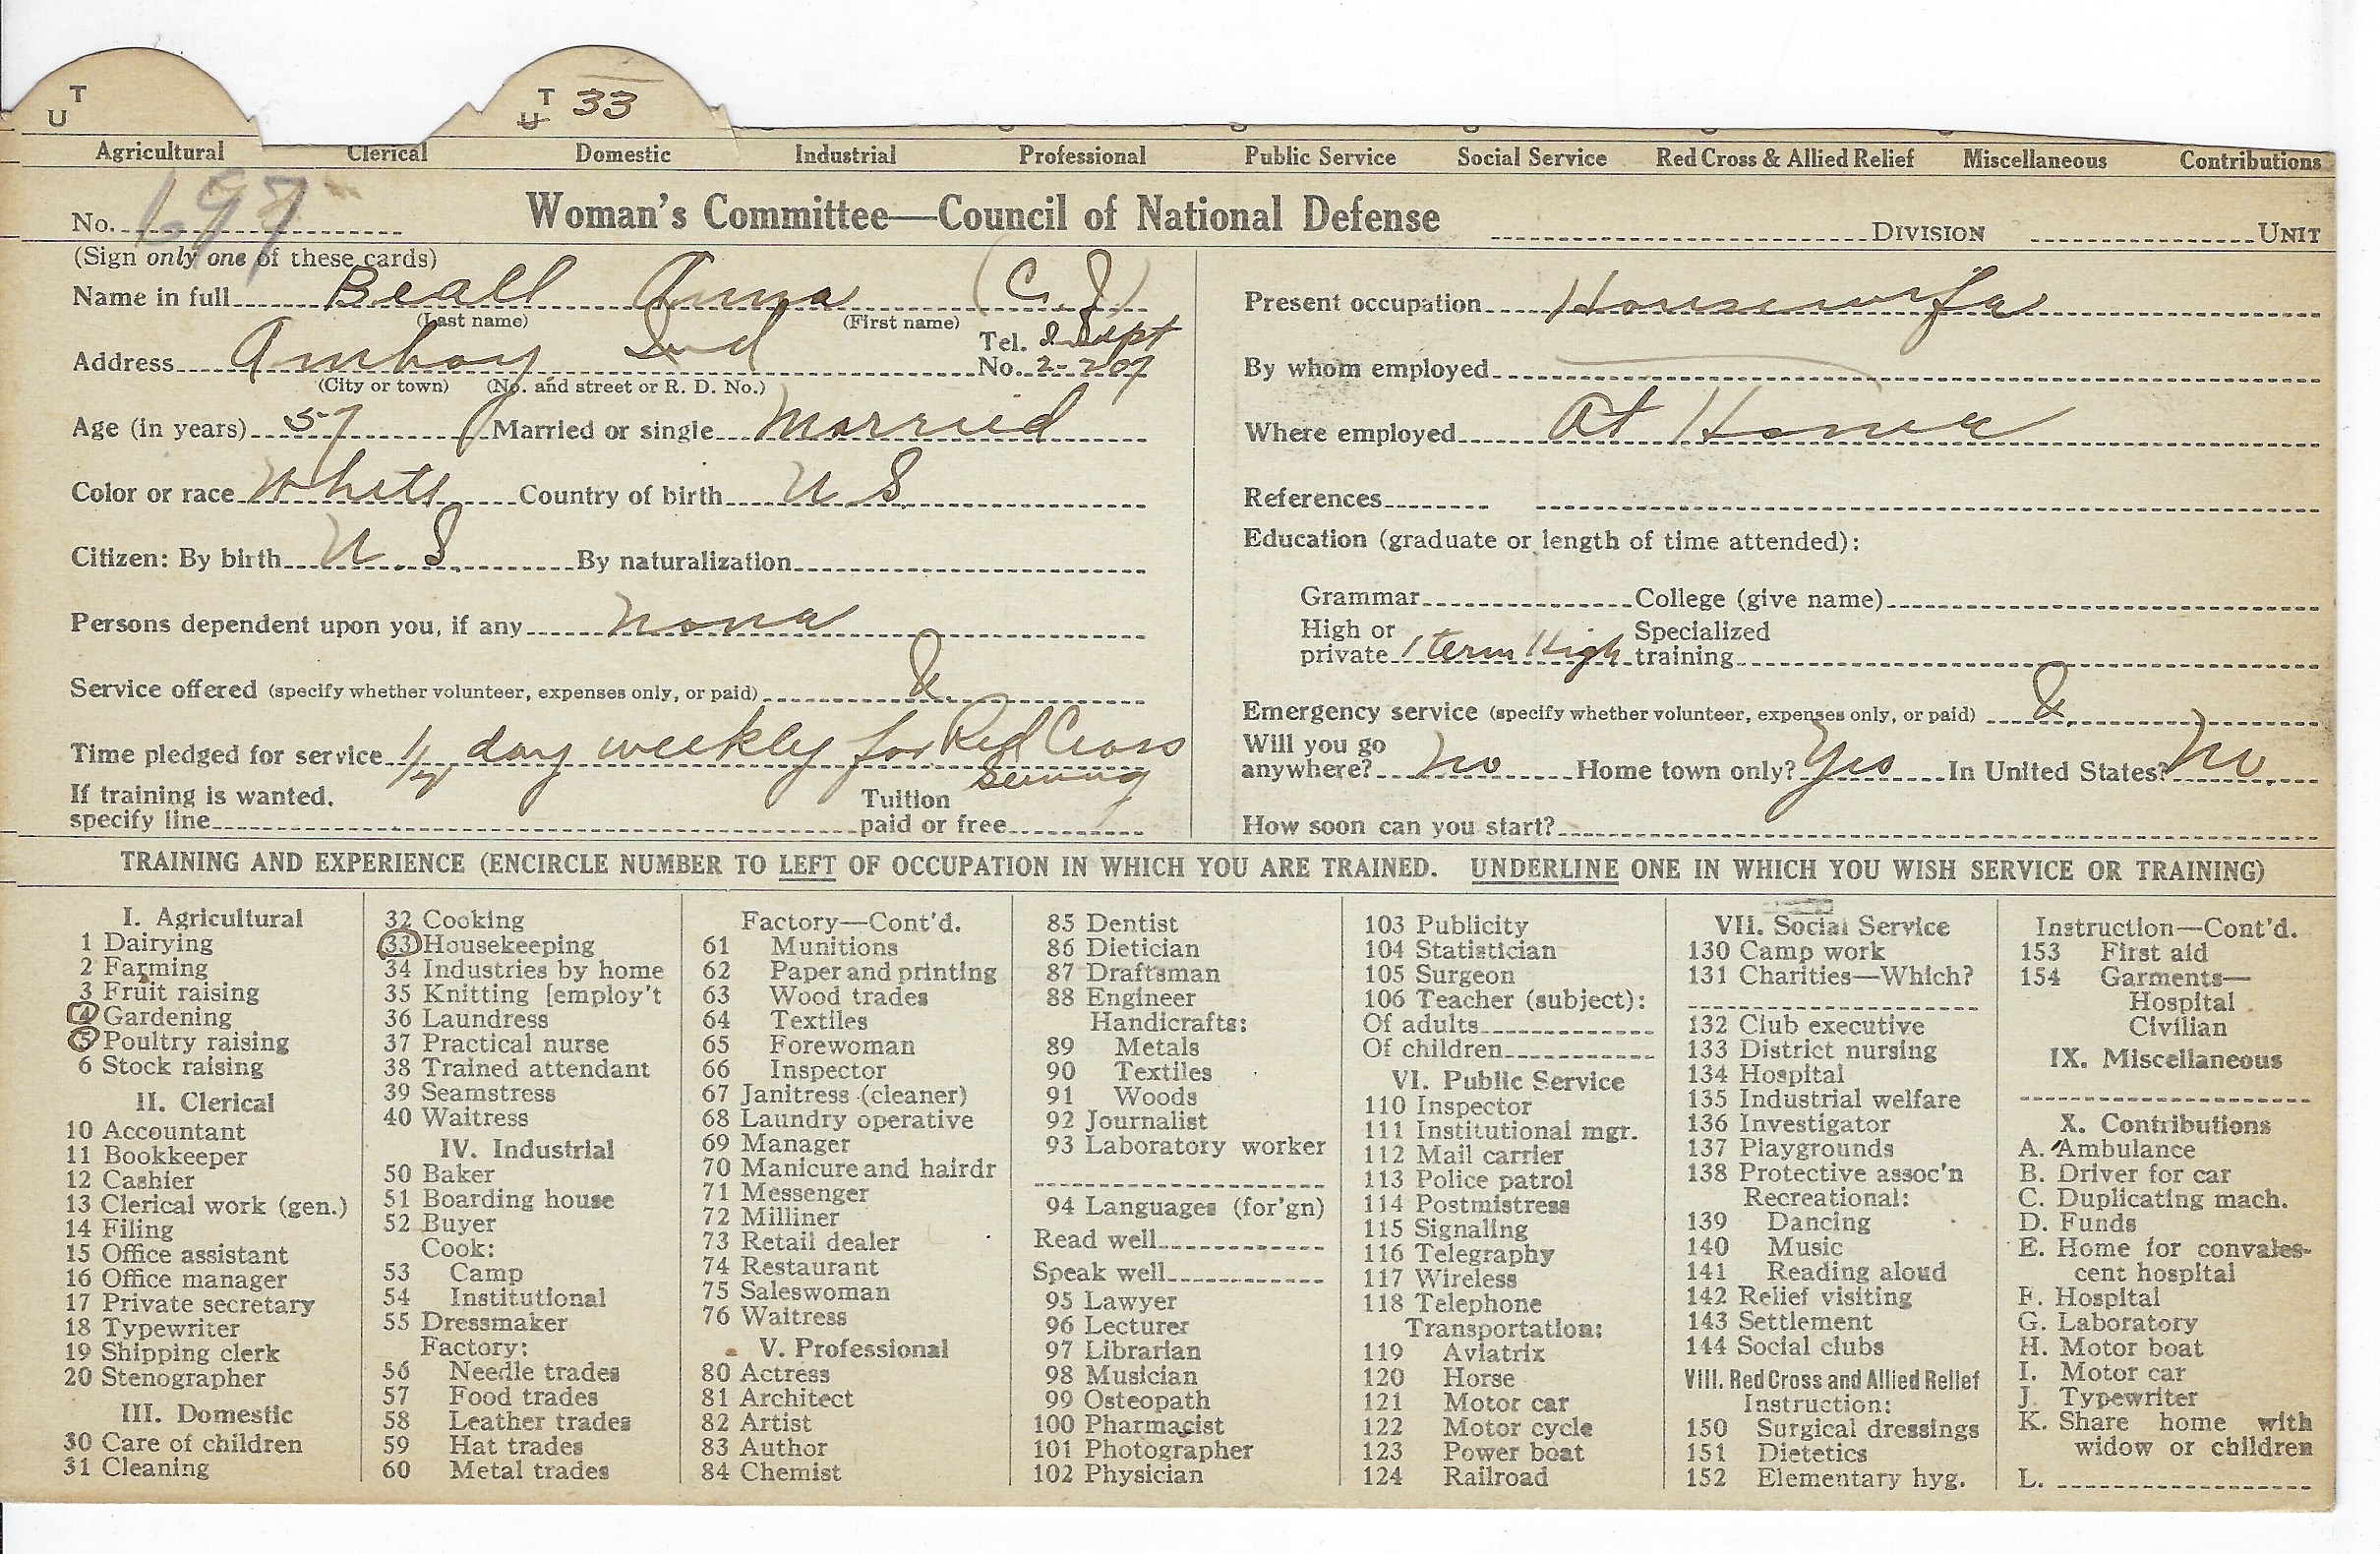 T
U
T 33
U
Agricultural Clerical Domestic Industrial Professional Public Service Social Service Red Cross & Allied Relief Miscellaneous Contributions
No. 697 Woman's Committee—Council of National Defense DIVISION UNIT
(Sign only one of these cards)
Name in full Beall Anna (C. J)
(Last name) (First name)
Address Amboy Ind Tel. No. 2-207
(City or town) (No. and street or R. D. No.)
Age (in years) 57 Married or single Married
Color or race White Country of birth U S
Citizen: By birth U. S. By naturalization
Persons dependent upon you, if any none
Service offered (specify whether volunteer, expenses only, or paid)
Time pledged for service 1/4 day weekly for Red Cross
Sewing
If training is wanted, specify line Tuition paid or free
Present occupation Housewife
By whom employed
Where employed At Home
References
Education (graduate or length of time attended):
Grammar College (give name)
High or private 1 term High Specialized training
Emergency service (specify whether volunteer, expenses only, or paid)
Will you go anywhere? no Home town only? Yes In United States? No.
How soon can you start?
TRAINING AND EXPERIENCE (ENCIRCLE NUMBER TO LEFT OF OCCUPATION IN WHICH YOU ARE TRAINED. UNDERLINE ONE IN WHICH YOU WISH SERVICE OR TRAINING)
I. Agricultural
1 Dairying
2 Farming
3 Fruit raising
4 Gardening
5 Poultry raising
6 Stock raising
II. Clerical
10 Accountant
11 Bookkeeper
12 Cashier
13 Clerical work (gen.)
14 Filing
15 Office assistant
16 Office manager
17 Private secretary
18 Typewriter
19 Shipping clerk
20 Stenographer
III. Domestic
30 Care of children
31 Cleaning
32 Cooking
33 Housekeeping
34 Industries by home
35 Knitting [employ't
36 Laundress
37 Practical nurse
38 Trained attendant
39 Seamstress
40 Waitress
IV. Industrial
50 Baker
51 Boarding house
52 Buyer
Cook:
53 Camp
54 Institutional
55 Dressmaker
Factory:
56 Needle trades
57 Food trades
58 Leather trades
59 Hat trades
60 Metal trades
Factory—Cont'd.
61 Munitions
62 Paper and printing
63 Wood trades
64 Textiles
65 Forewoman
66 Inspector
67 Janitress (cleaner)
68 Laundry operative
69 Manager
70 Manicure and hairdr
71 Messenger
72 Milliner
73 Retail dealer
74 Restaurant
75 Saleswoman
76 Waitress
V. Professional
80 Actress
81 Architect
82 Artist
83 Author
84 Chemist
85 Dentist
86 Dietician
87 Draftsman
88 Engineer
Handicrafts:
89 Metals
90 Textiles
91 Woods
92 Journalist
93 Laboratory worker
94 Languages (for'gn)
Read well
Speak well
95 Lawyer
96 Lecturer
97 Librarian
98 Musician
99 Osteopath
100 Pharmacist
101 Photographer
102 Physician
103 Publicity
104 Statistician
105 Surgeon
106 Teacher (subject):
Of adults
Of children
VI. Public Service
110 Inspector
111 Institutional mgr.
112 Mail carrier
113 Police patrol
114 Postmistress
115 Signaling
116 Telegraphy
117 Wireless
118 Telephone
Transportation:
119 Aviatrix
120 Horse
121 Motor car
122 Motor cycle
123 Power boat
124 Railroad
VII. Social Service
130 Camp work
131 Charities—Which?
132 Club executive
133 District nursing
134 Hospital
135 Industrial welfare
136 Investigator
137 Playgrounds
138 Protective assoc'n
Recreational:
139 Dancing
140 Music
141 Reading aloud
142 Relief visiting
143 Settlement
144 Social clubs
VIII. Red Cross and Allied Relief
Instruction:
150 Surgical dressings
151 Dietetics
152 Elementary hyg.
Instruction—Cont'd.
153 First aid
154 Garments—
Hospital
Civilian
IX. Miscellaneous
X. Contributions
A. Ambulance
B. Driver for car
C. Duplicating mach.
D. Funds
E. Home for convales-
cent hospital
F. Hospital
G. Laboratory
H. Motor boat
I. Motor car
J. Typewriter
K. Share home with
widow or children
L.